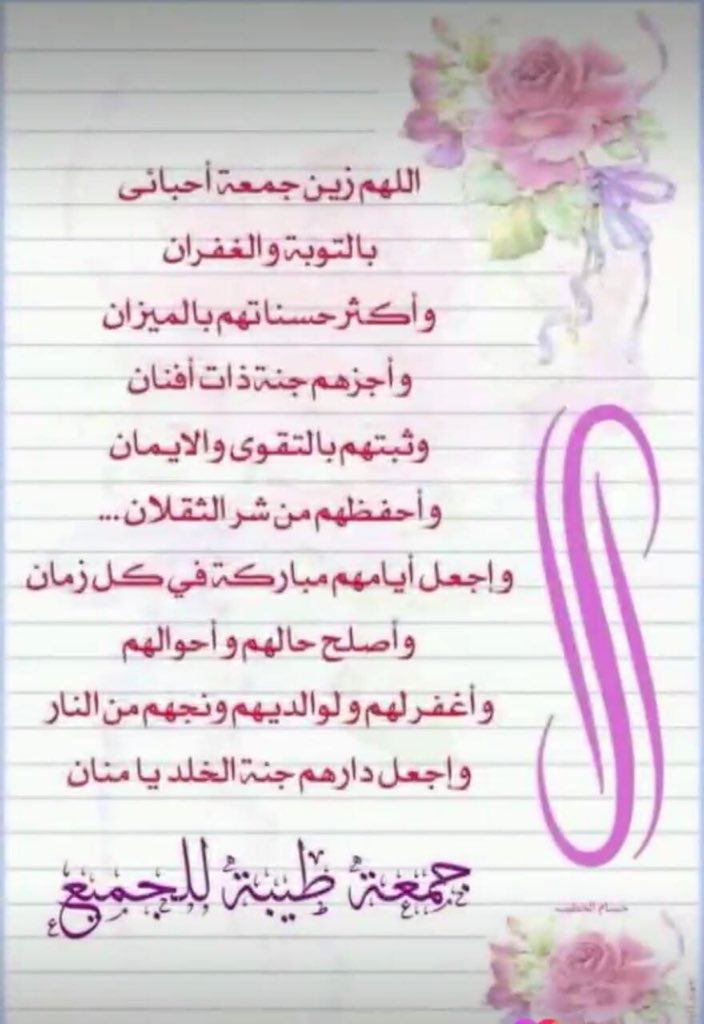 اللهم زين جمعة أحبائى
بالتوبة والغفران
وأكثر حسناتهم بالميزان
وأجزهم جنة ذات أفنان
وثبتهم بالتقوى والايمان
وأحفظهم من شر الثقلان...
وإجعل أيامهم مباركة في كل زمان
وأصلح حالهم وأحوالهم
وأغفر لهم ولوالديهم ونجهم من النار
وإجعل دارهم جنة الخلد يا منان
جمعة طيبة للجميع
حسام الخطيب